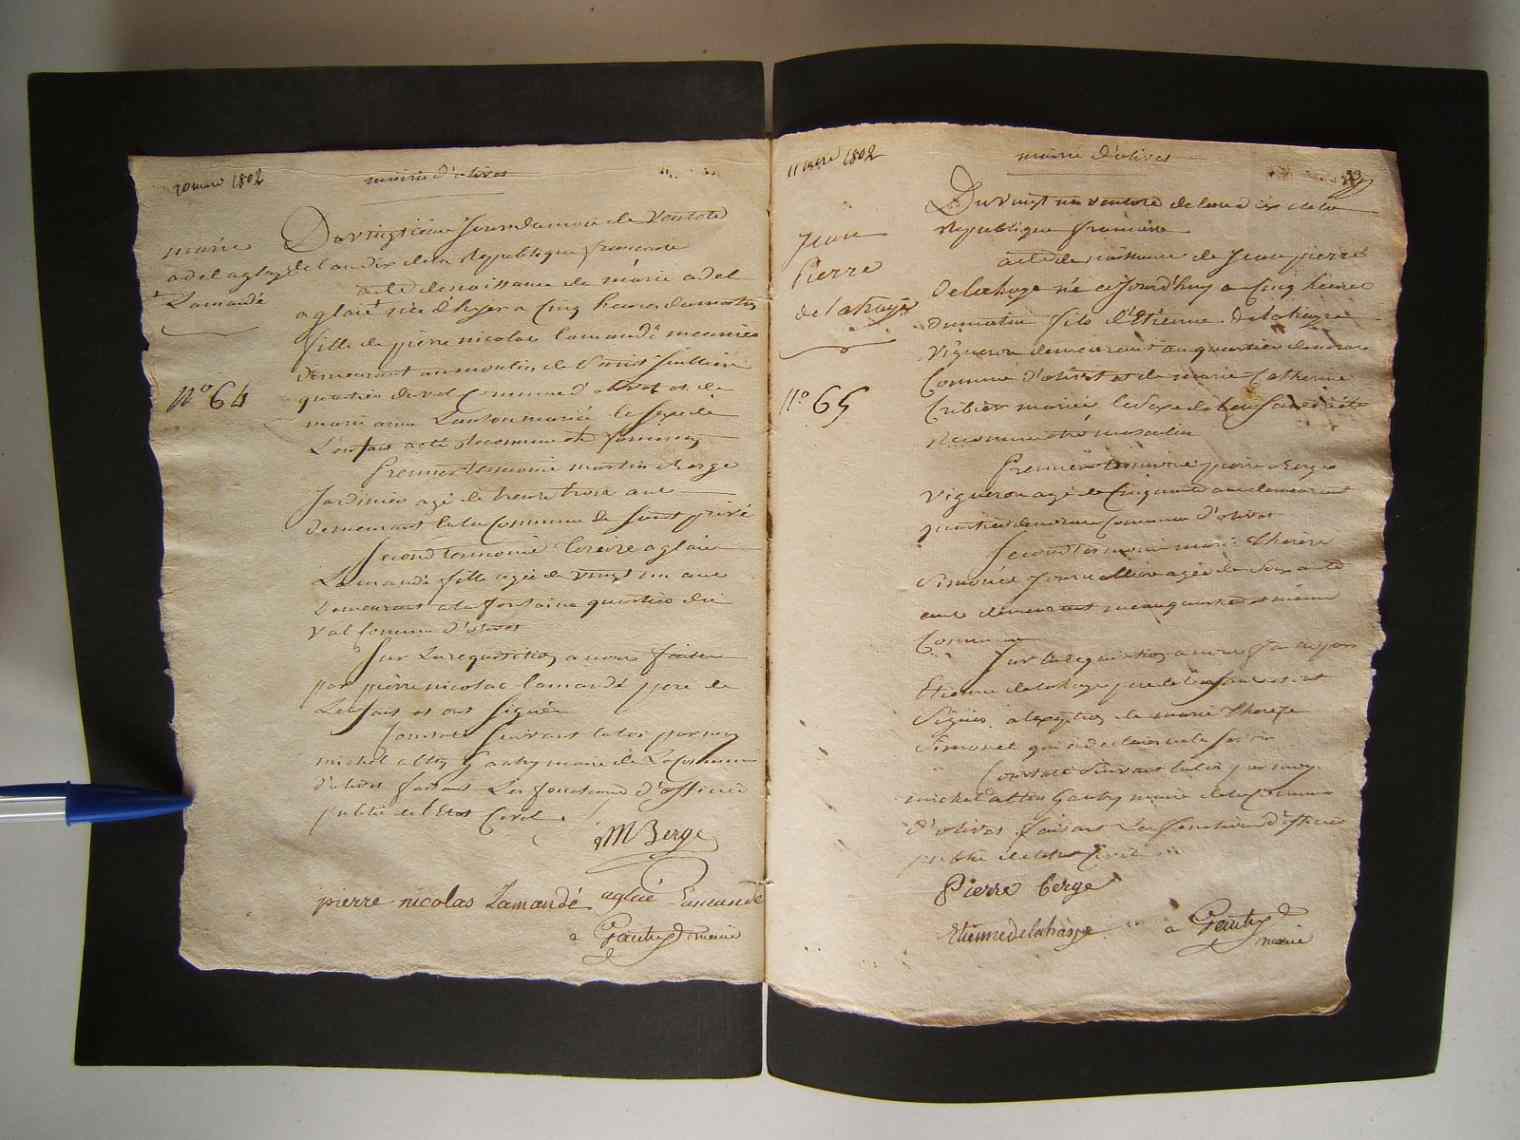 mairie d'olivet
Marie
adel aglaé
Lamandé
N° 64
Du vingtième jour du mois de Ventose
de l'an dix de la Republique francaise
acte de naissance de marie adel
aglaé née d'hyer a Cinq heures du matin
fille de pierre nicolas lamandé meunier
demeurant au moulin de
quartier du val Commune d'olivet et de
marie anne mariés le sexe de
L'enfant a été reconnu être feminin
Premier temoin martin Berge
Jardinier agé de trente trois ans
demeurant la Commune de Saint privé
Second temoin aglaé
Lamandé fille agée de vingt un ans
demeurant a la fontaine quartier du
Val Commune d'olivet
Sur La requisition a nous faite
par pierre nicolas lamandé pere de
L'enfant et ont signés
Constaté Suivant la loi par moy
michel Gautry maire de La Commune
d'olivet faisant Les fonctions d'officier
public de l'Etat Civil
M Berge
pierre nicolas Lamandé aglaé Lamandé
Gautry maire
1802
mairie d'olivet
Jean
Pierre
delahaye
N° 65
Du vingt un ventose de l'an dix de la
Republique francaise
acte de naissance de Jean pierre
Delahaye né ce Jourd'huy a Cinq heures
du matin fils d'Etienne Delahaye
Vigneron demeurant au quartier
Commune d'olivet et de marie Catherine
mariés le Sexe de L'enfant a été
reconnu être masculin
Premier temoin pierre Berge
Vigneron agé de Cinquante ans demeurant
quartier Commune d'olivet
Second temoin marie therese
Simonet Journalliere agée de Soixante
ans demeurant meme
Commune
Sur la requisition a nous faite par
Etienne delahaye pere de L'enfant et ont
Signés a l'exception de marie therese
Simonet qui a declaré ne le savoir
Constaté Suivant la loi par moy
michel Gautry maire de la Commune
d'olivet faisant Les fonctions d'officier
public de l'etat Civil
Pierre berge
Etienne delahaye Gautry
maire